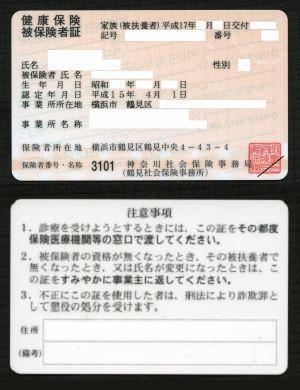 健康保険 家族(被扶養者) 平成17年 月 日交付
被保険者証 記号 番号
氏名 性別
被保険者氏名
生年月日 昭和 年 月 日
認定年月日 平成15年 4月 1日
事業所所在地 横浜市 鶴見区
事業所名称
保険者所在地 横浜市鶴見区鶴見中央4-43-4
保険者番号・名称 3101 神奈川社会保険事務局
(鶴見社会保険事務所)
注意事項
1. 診療を受けようとするときには、この証をその都度
保険医療機関等の窓口で渡してください。
2. 被保険者の資格がなくなったとき、その被扶養者で
無くなったとき、又は氏名が変更になったときは、こ
の証をすみやかに事業主に返してください。
3. 不正にこの証を使用した者は、刑法により詐欺罪と
して懲役の処分を受けます。
住所
(備考)